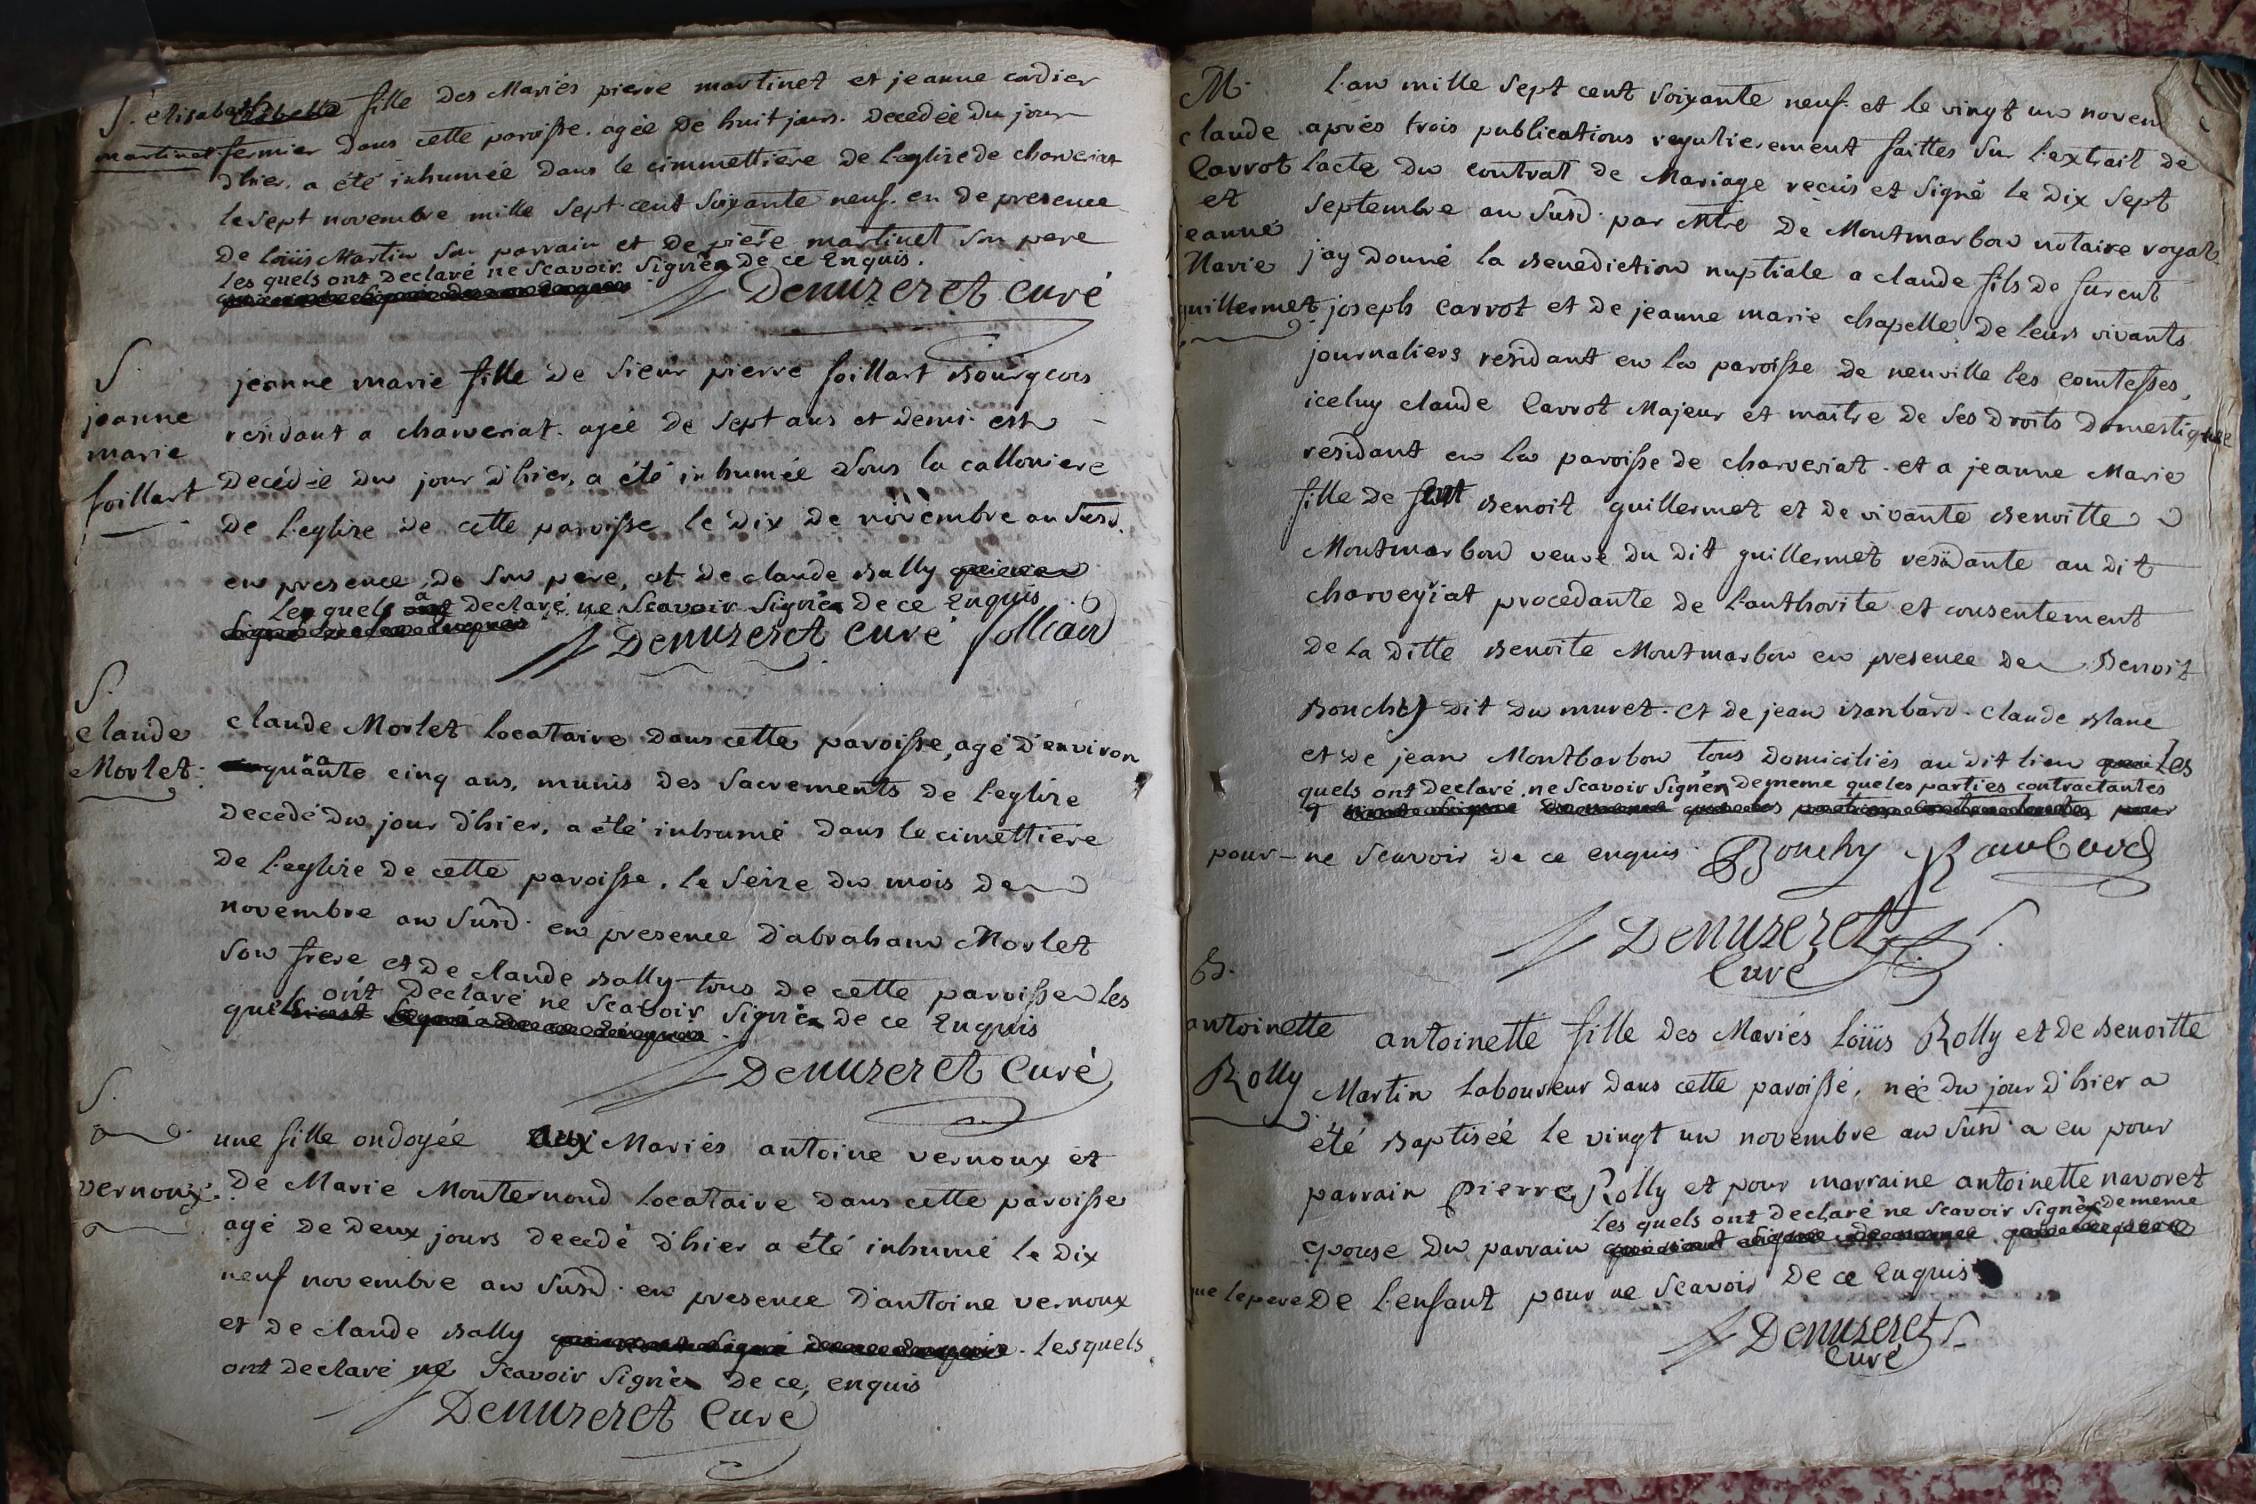 S. elisabeth fille des Mariés pierre martinet et jeanne cordier
martinet fermier dans cette paroisse. agée de huit jours. decedée du jour
d'hier. a été inhumée dans le cimmettiere de l'eglise de charveriat
le sept novembre mille sept cent soixante neuf. en de presence
de loüis Martin son parrain et de pierre martinet son pere
les quels ont declaré ne scavoir signér de ce Enquis.
Denuzeret curé
S.
jeanne
marie
foillart
jeanne marie fille de sieur pierre foillart Bourgeois
residant a charveriat. agée de sept ans et demi est
decédée du jour d'hier, a été inhumée sous la calloniere
de l'eglise de cette paroisse le dix de novembre an susd.
en presence de son pere, et de claude Bally
les quels a declaré ne scavoir signér de ce Enquis
Denuzeret curé follard
S.
claude
Morlet.
claude Morlet locataire dans cette paroisse, agé d'environ
quarante cinq ans, munis des sacrements de l'eglise
decedé du jour d'hier, a été inhumé dans le cimettiere
de l'eglise de cette paroisse. le seize du mois de
novembre an susd. en presence d'abraham Morlet
son frere et de claude Bally tous de cette paroisse les
quels ont declaré ne scavoir signér de ce Enquis
Denuzeret curé
S.
vernoux.
une fille ondoyée aux Mariés antoine vernoux et
de Marie Monternoud locataire dans cette paroisse
agé de deux jours decedé d'hier a été inhumé le dix
neuf novembre an susd. en presence d'antoine vernoux
et de claude Bally lesquels
ont declaré ne scavoir signér de ce, enquis
Denuzeret curé
M.
claude
Carrot
et
jeanne
Marie
guillermet
L'an mille sept cent soixante neuf. et le vingt un novem
aprés trois publications regulierement faittes sur l'extrait de
l'acte du contrat de Mariage recüs et signé le dix sept
septembre an susd. par Mtre De Montmarbon notaire royal
j'ay donné la Benediction nuptiale a claude fils de furent
joseph carrot et de jeanne marie chapelle, de leurs vivants
journaliers residant en la paroisse de neuville les comtesses,
iceluy claude Carrot Majeur et maître de ses droits domestique
residant en la paroisse de charveriat. et a jeanne Marie
fille de Benoit guillermet et de vivante Benoitte
Montmarbon veuve du dit guillermet residante au dit
charveyriat procedante de l'authorité et consentement
de la ditte Benoite Montmarbon en presence de Benoit
Bouchy dit du muret. et de jean Rambard. claude Blanc
et de jean Montbarbon tous domiciliés au dit lieu les
quels ont declaré ne scavoir signér de meme que les parties contractantes
pour ne scavoir de ce enquis. Bouchy Rambard
Denuzeret
Curé
B.
antoinette
Rolly
antoinette fille des Mariés loüis Rolly et de Benoitte
Martin laboureur dans cette paroisse, née du jour d'hier a
été Baptiseé le vingt un novembre an susd. a eu pour
parrain pierre Rolly et pour marraine antoinette navoret
les quels ont declaré ne scavoir signér de meme
epouse du parrain
que le pere de l'enfant pour ne scavoir de ce Enquis
Denuzeret
Curé